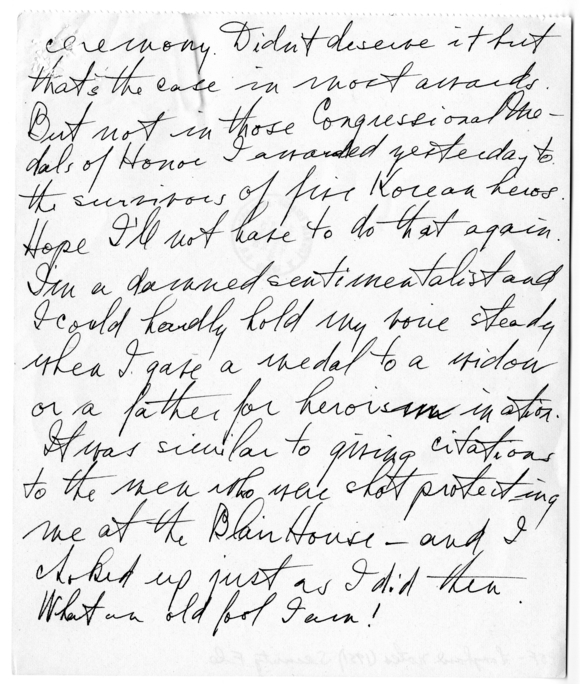 ceremony. Didn't deserve it but
that's the case in most awards.
But not in those Congressional Me-
dals of Honor I awarded yesterday to
the survivors of five Korean heros.
Hope I'll not have to do that again.
I'm a damned sentimentalist and
I could hardly hold my voice steady
when I gave a medal to a widow
or a father for heroism in action.
It was similar to giving citations
to the men who were shot protecting
me at the Blair House – and I
choked up just as I did then.
What an old fool I am!